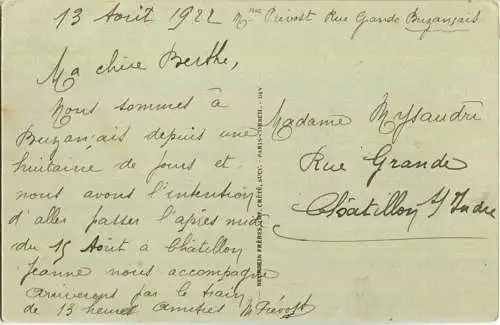 13 Août 1922 Mme Prévost Rue Grande Buzançais
Ma chère Berthe,
Nous sommes à
Buzançais depuis une
huitaine de jours et
nous avons l'intention
d'aller passer l'après midi
du 15 Août à Châtillon
Jeanne nous accompagne
arriverons par le train
de 13 heures Amitiés M Prévost
Madame
Rue Grande
Châtillon s/ Indre